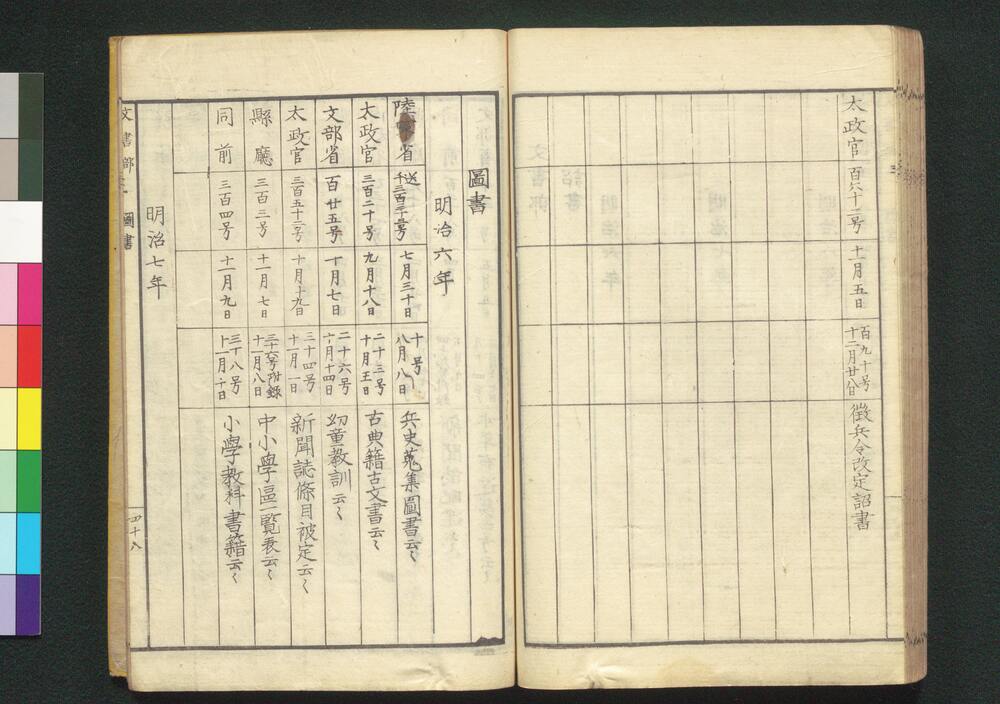 太政官 百六十二号 十一月五日 百九十号 十二月廿八日 徴兵令改定詔書
圖書
明治六年
陸軍省 送千三百三十号 七月三十日 十号 八月八日 兵史蒐集圖書云〻
太政官 三百二十号 九月十八日 二十三号 十月五日 古典籍古文書云〻
文部省 百廿五号 十月七日 二十六号 十月十四日 幼童教訓云〻
太政官 三百五十二号 十月十九日 三十四号 十一月一日 新聞誌條目被定云〻
縣廳 三百三号 十一月七日 三十六号附録 十一月八日 中小學區一覧表云〻
同前 三百四号 十一月九日 三十八号 十一月十日 小學教科書籍云〻
明治七年
文書部 圖書
四十八